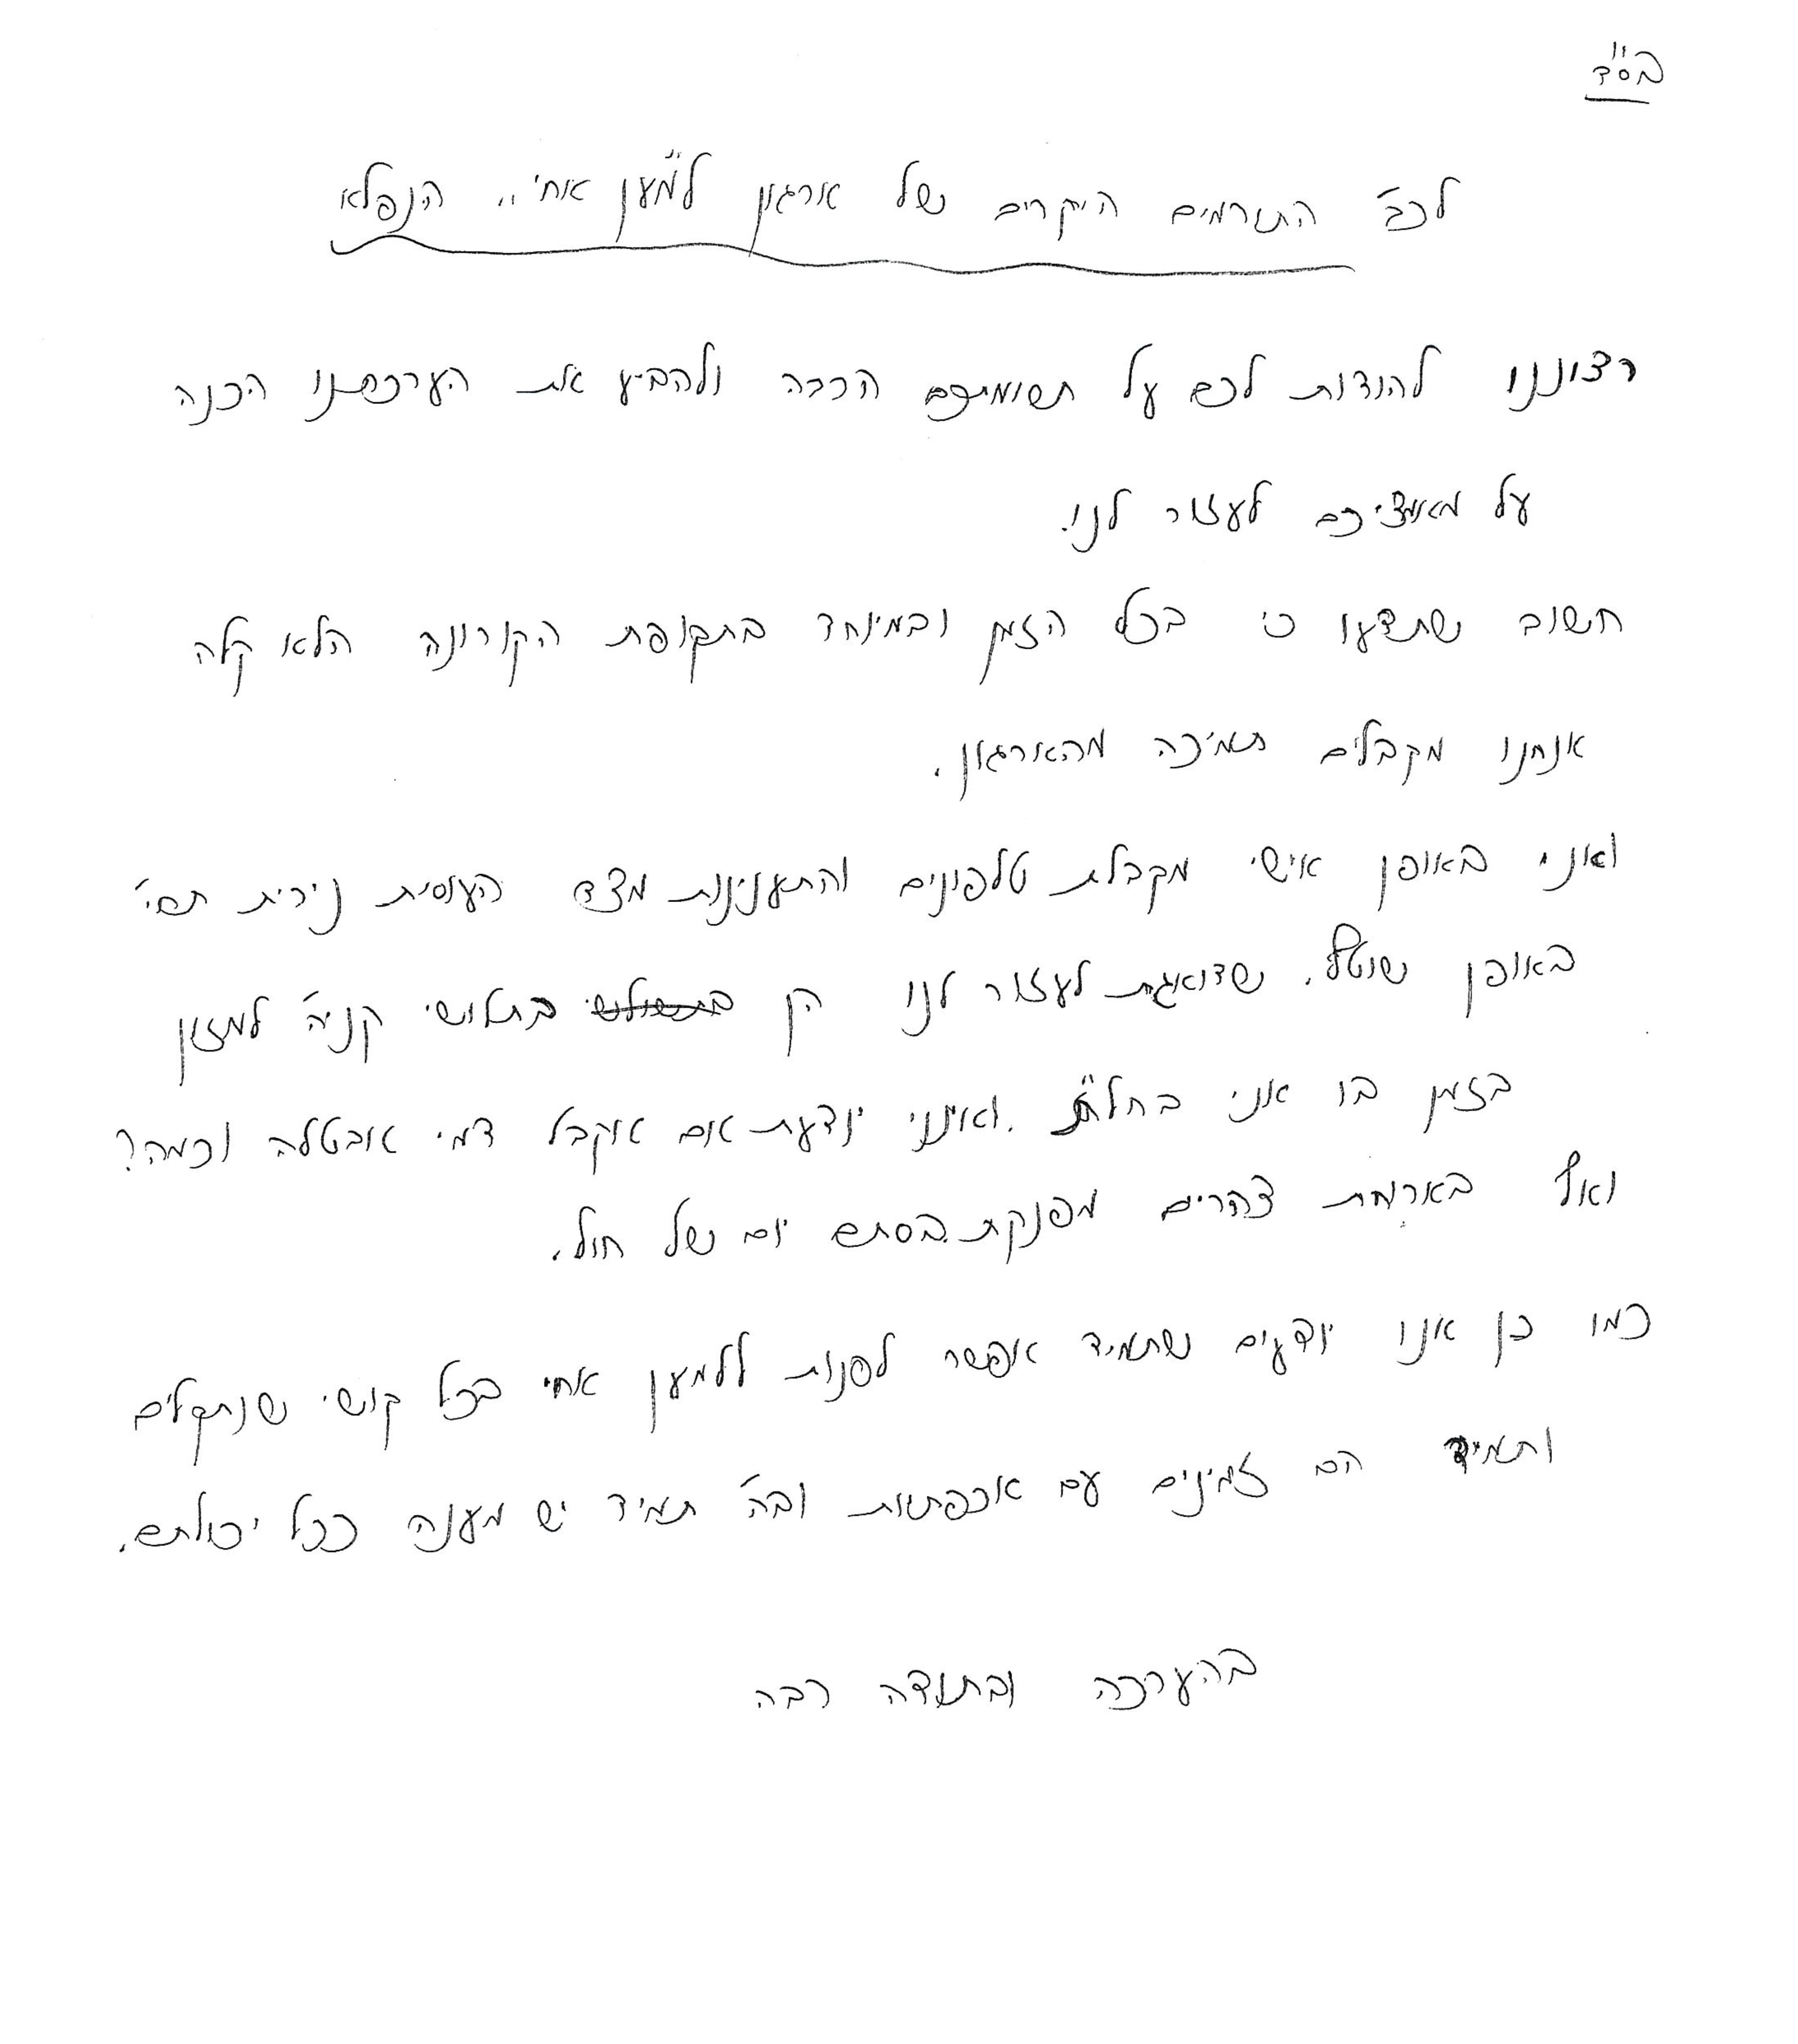 בס"ד
לכב' התורמים היקרים של ארגון ל"מען אחי" הנפלא
רצוננו להודות לכם על תשומתכם הרבה ולהביע את הערכתנו הכנה
על מאמציכם לעזור לנו.
חשוב שתדעו כי בכל הזמן ובמיוחד בתקופת הקורונה הלא קלה
אנחנו מקבלים תמיכה מהארגון.
ואני באופן אישי מקבלת טלפונים והתענינות מצד העוסית נירית תחי'
באופן שוטף. שדואגת לעזור לנו הן בתלושי קניה למזון
בזמן בו אני בחל"ת. ואינני יודעת אם אקבל דמי אבטלה וכמה?
ואף בארוחת צהרים מפנקת בסתם יום של חול.
כמו כן אנו יודעים שתמיד אפשר לפנות ללמען אחי בכל קושי שנתקלים
ותמיד הם זמינים עם אכפתיות ובה' תמיד יש מענה ככל יכולתם.
בהערכה ובתודה רבה